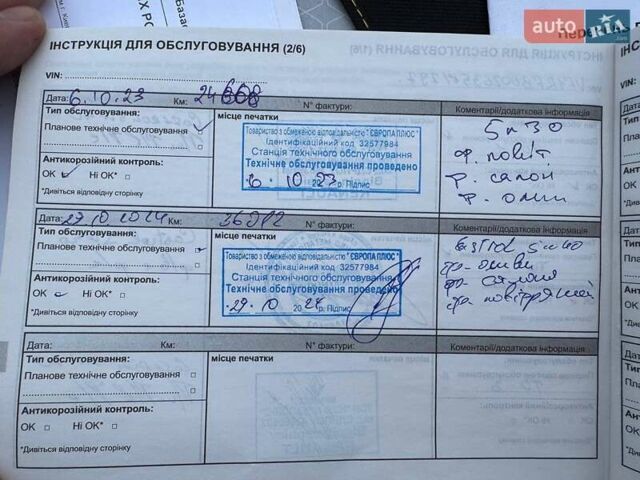 auto RIA.com
ІНСТРУКЦІЯ ДЛЯ ОБСЛУГОВУВАННЯ (2/6)
VIN:
Дата: 6.10.23 Км: N° фактури: Коментарі/додаткова інформація
Тип обслуговування: місце печатки
Планове технічне обслуговування
Антикорозійний контроль:
OK Ні OK*
*Дивіться відповідну сторінку
Товариство з обмеженою відповідальністю "ЄВРОПА ПЛЮС"
Ідентифікаційний код 32577984
Станція технічного обслуговування
Технічне обслуговування проведено
6.10 2023 р. Підпис
5w30
ф. повіт.
ф. салон
ф. оливи
Дата: 29 10 2024 Км: N° фактури: Коментарі/додаткова інформація
Тип обслуговування: місце печатки
Планове технічне обслуговування
Антикорозійний контроль:
OK Ні OK*
*Дивіться відповідну сторінку
Товариство з обмеженою відповідальністю "ЄВРОПА ПЛЮС"
Ідентифікаційний код 32577984
Станція технічного обслуговування
Технічне обслуговування проведено
29.10 2024 р. Підпис
Дата: Км: N° фактури: Коментарі/додаткова інформація
Тип обслуговування: місце печатки
Планове технічне обслуговування
Антикорозійний контроль:
OK Ні OK*
*Дивіться відповідну сторінку